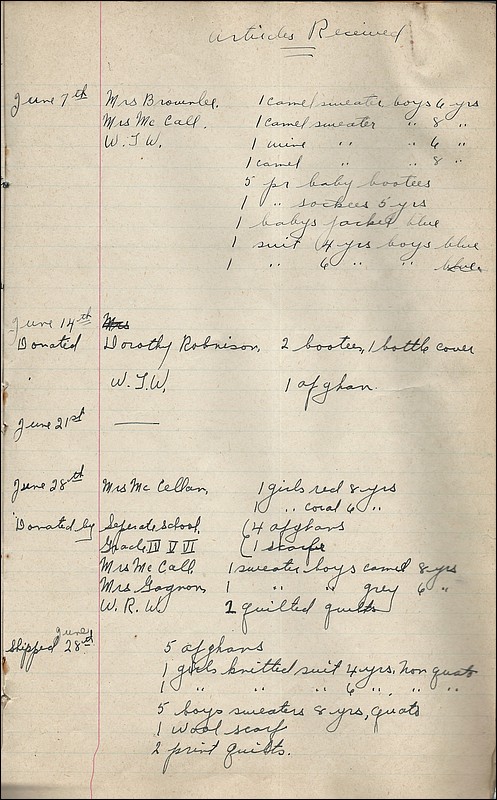 Articles Received
June 7th Mrs Brownlee. 1 camel sweater boys 6 yrs
Mrs McCall. 1 camel sweater " 8 "
W.I.W. 1 wine " " 6 "
1 camel " " 8 "
5 pr baby bootees
1 " sockees 5 yrs
1 babys jacket blue
1 suit 4 yrs boys blue
1 " 6 " " blue
June 14th Mrs
Donated Dorothy Robnison, 2 bootees, 1 bottle cover
" W.I.W. 1 afghan.
June 21st —
June 28th Mrs McCellan, 1 girls red 8 yrs
1 " coral 6 "
Donated by Seperate School, (4 afghans
Grade IV V VI (1 scarfe
Mrs McCall 1 sweater boys camel 8 yrs
Mrs Gagnon, 1 " " grey 6 "
W.R.W. 2 quilted quilts
Shipped June 28th 5 afghans
1 girls knitted suit 4 yrs, Non quota
1 " " " 6 " " "
5 boys sweaters 8 yrs, quota
1 wool scarf
2 print quilts.